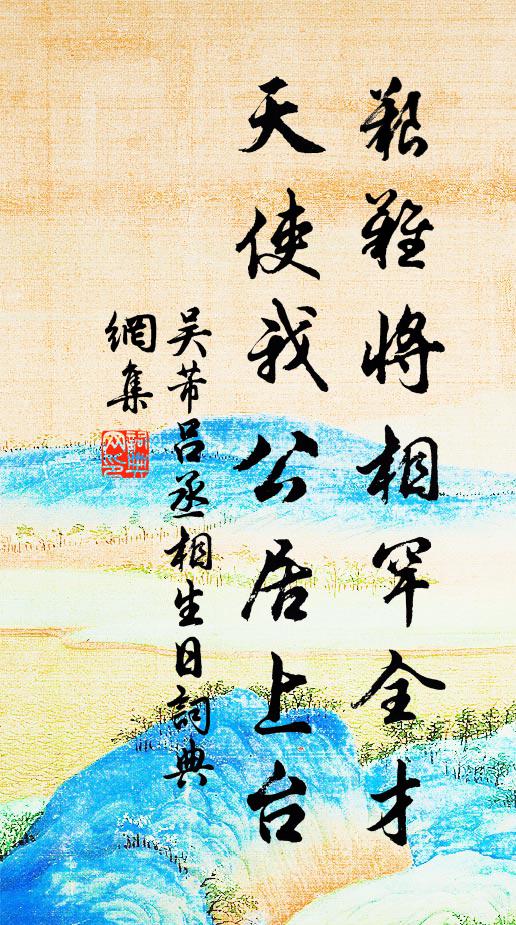 艱難將相罕全才
天使我公居上台
吴芾吕丞相生日詞典
網集